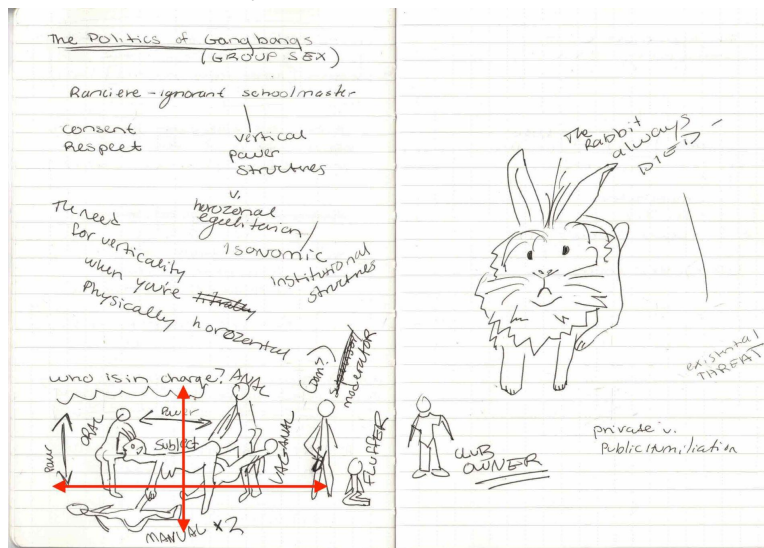 The Politics of Gangbangs
(GROUP SEX)
Ranciere - ignorant schoolmaster
consent
Respect
vertical
power
structures
v.
horozonal
egalitarian/
Isonomic
institutional
structures
The need
for verticality
when you're
physically horozontal
who is in charge?
ANAL
Power
ORAL
Power
Subject
VAGANAL
MANUAL x2
moderator
FLUFFER
The
Rabbit
always
DIED -
existintal
THREAT
CLUB
OWNER
private v.
Public humiliation